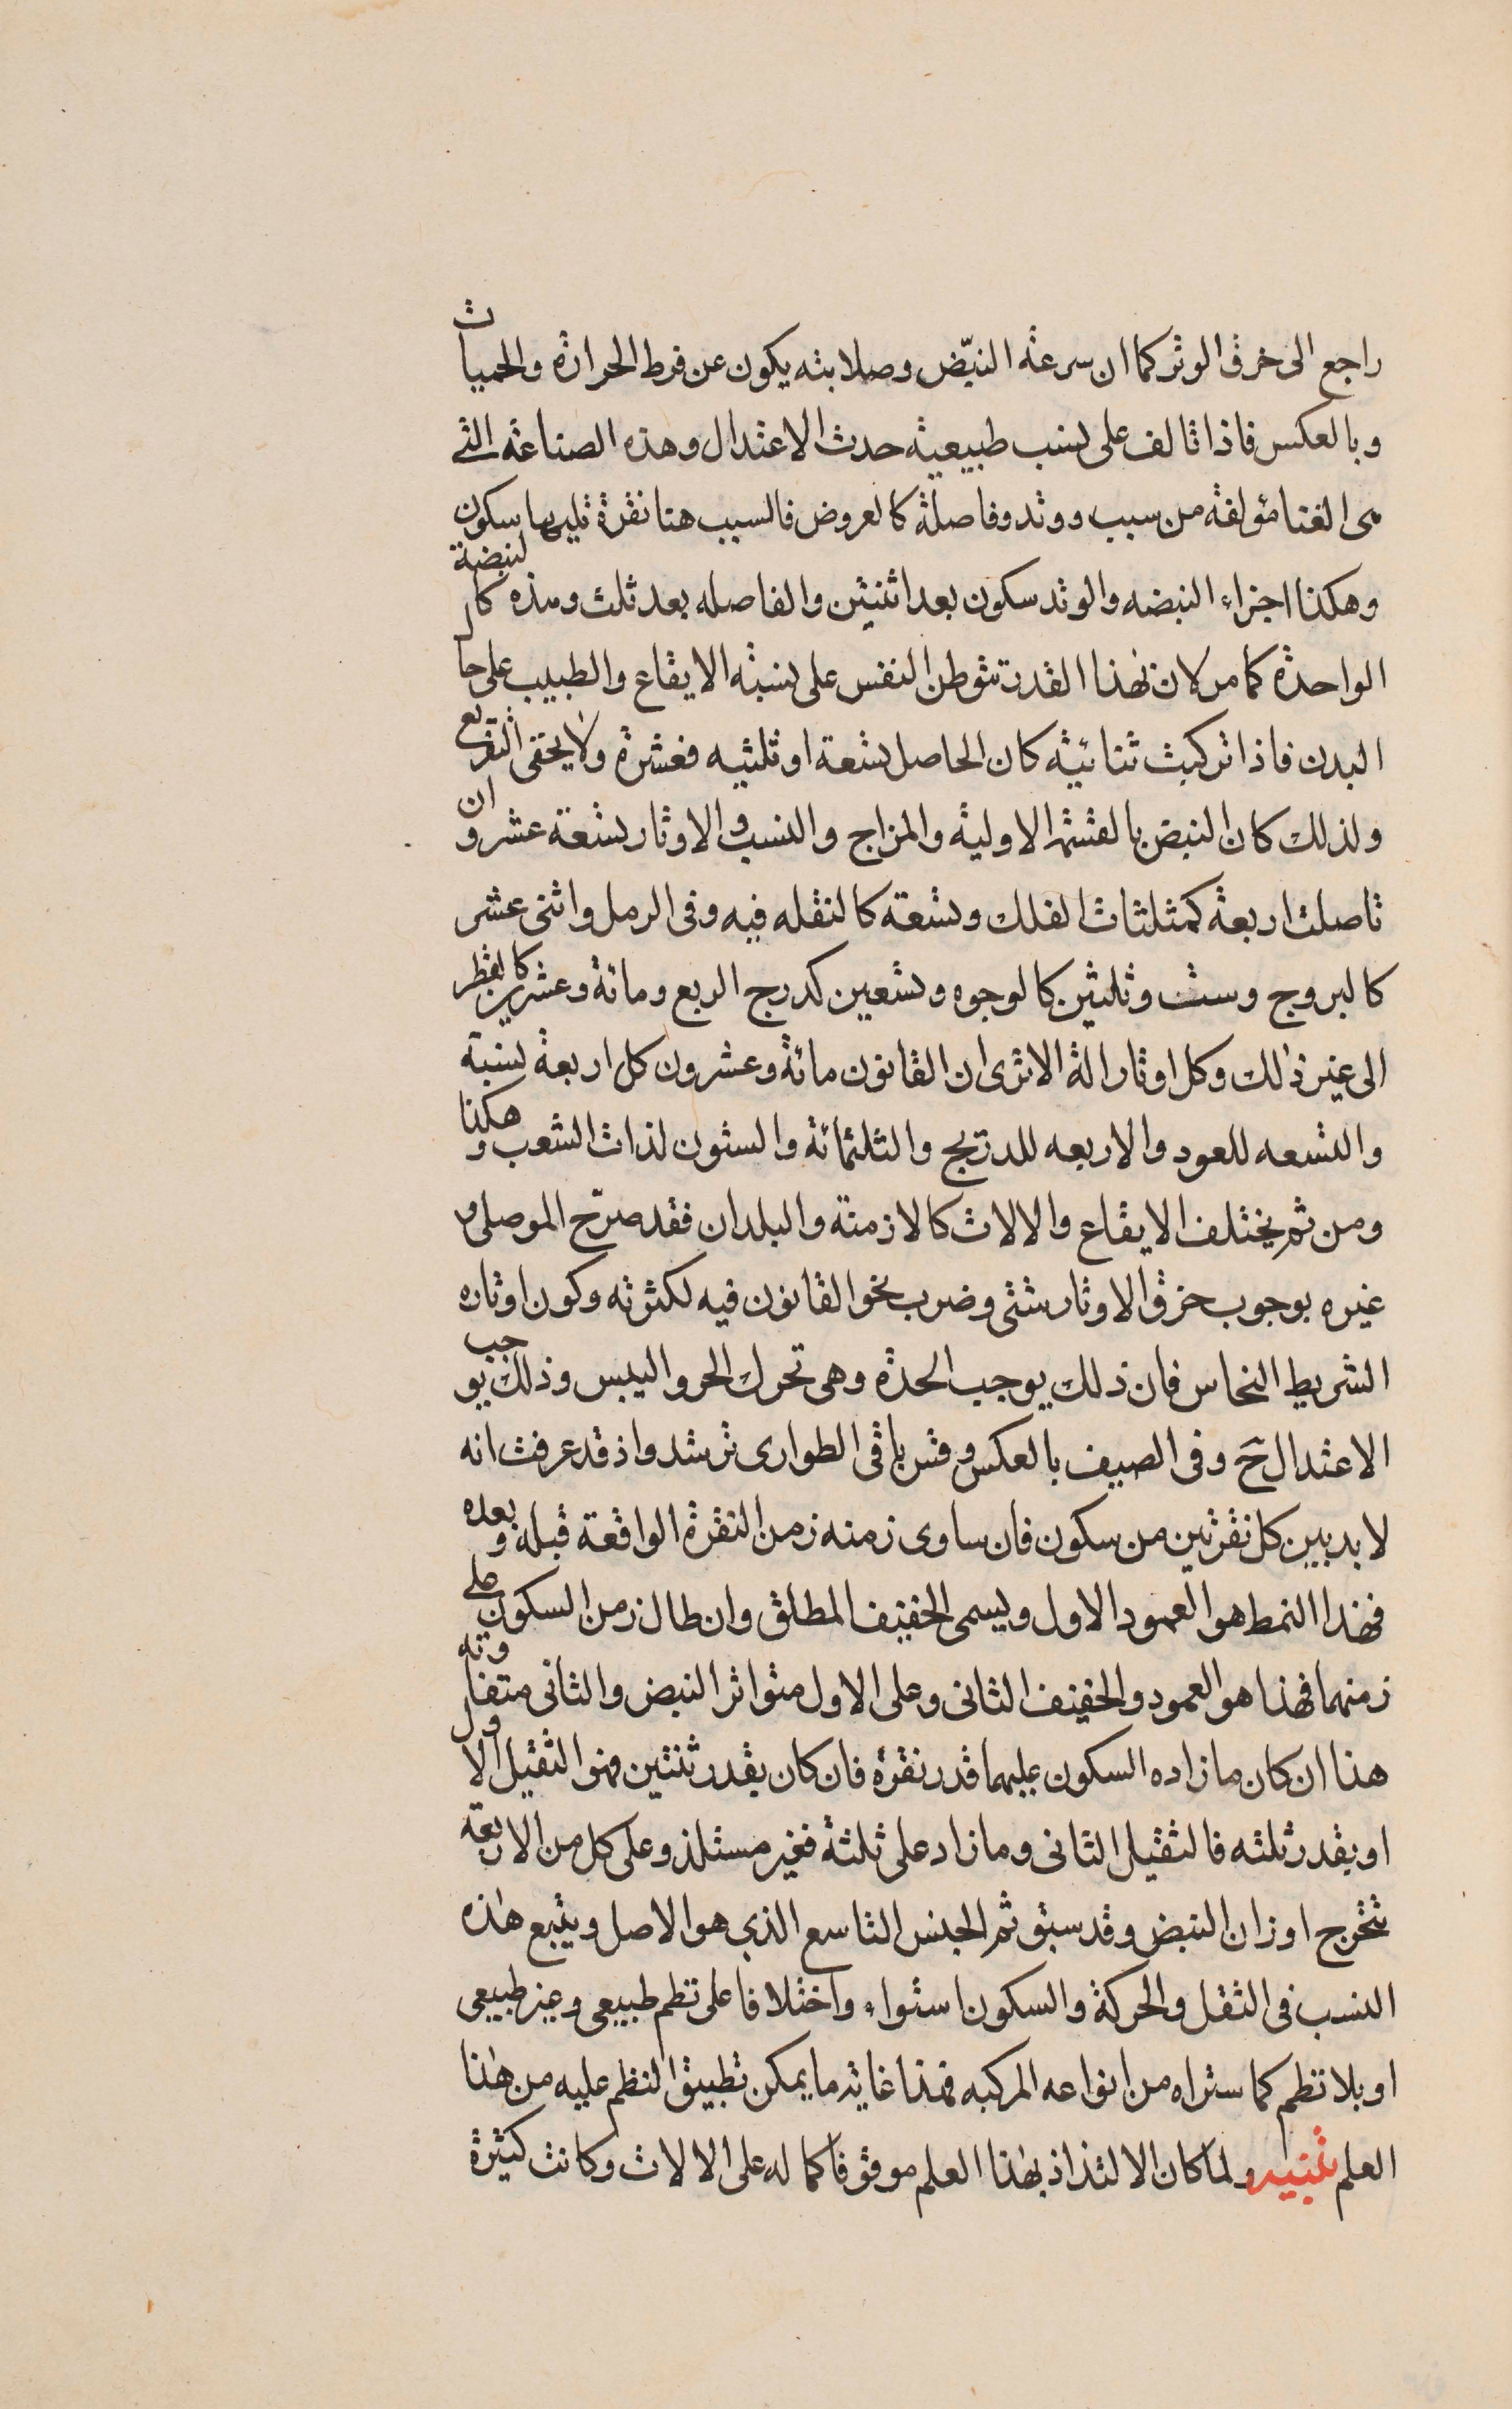 راجع الى خرق الوتر كما ان سرعته النبّض وصلابته يكون عن فرط الحرارة والحميات
وبالعكس فاذا تالف على نسب طبيعيه حدث الاعتدال وهذه الصناعة التى
هى الغنا مؤلفة من سبب ووتد وفاصلة كالعروض فالسبب هنا نقرة تليها سكون
وهكذا اجزاء النبضه والوتد سكون بعد اثنين والفاصله بعد ثلث وهذه كالنبضة
الواحدة كما مر لان بهذا القدر تتوطن النفس على نسبة الايقاع والطبيب على حال
البدن فاذا تركبت ثنائية كان الحاصل تسعة او ثلثيه فعشرة ولا يخفى التفريع
ولذلك كان النبض بالقسمة الاولية والمزاج والنسب والاوتار تسعة عشر وان
تاصلت اربعة كمثلثات الفلك وتسعة كالنقله فيه وفى الرمل واثنى عشر
كالبروج وست وثلثين كالوجوه وتسعين كدرج الربع ومائة وعشرين كالقطر
الى غير ذلك وكل اوتار الة الا ترى ان القانون مائة وعشرون كل اربعة نسبة
والتسعه للعود والاربعه للدرتج والثلثمائة والستون لذات الشعب وهكذا
ومن ثم يختلف الايقاع والالات كالازمنة والبلدان فقد صرّح الموصلى و
غيره بوجوب خرق الاوتار شتى وضرب نحو القانون فيه لكثرته وكون اوتاره
الشريط النحاس فان ذلك يوجب الحدة وهى تحرك الحر واليبس وذلك يوجب
الاعتدال ح وفى الصيف بالعكس وقس باقى الطوارى ترشد واذ قد عرفت انه
لا بد بين كل نقرتين من سكون فان ساوى زمنه زمن النقرة الواقعة قبله وبعده
فهذا النمط هو العمود الاول ويسمى الخفيف المطلق وان طال زمن السكون على
زمنهما فهذا هو العمود والخفيف الثانى وعلى الاول متواتر النبض والثانى متفاوته
هذا ان كان ما زاده السكون عليهما قدر نقرة فان كان بقدر ثنتين فهو الثقيل الاول
او بقدر ثلثه فالثقيل الثانى وما زاد على ثلثة فغير مستلذ وعلى كل من الاربعة
تتخرج اوزان النبض وقد سبق ثم الجنس التاسع الذى هو الاصل ويتبع هذه
النسب فى الثقل والحركة والسكون استواء واختلافا على نظم طبيعى وغير طبيعى
او بلا نظم كما ستراه من انواعه المركبه فهذا غاية ما يمكن تطبيق النظم عليه من هذا
العلم تنبيه ولما كان الالتذاذ بهذا العلم موقوفا كماله على الالات وكانت كثيرة